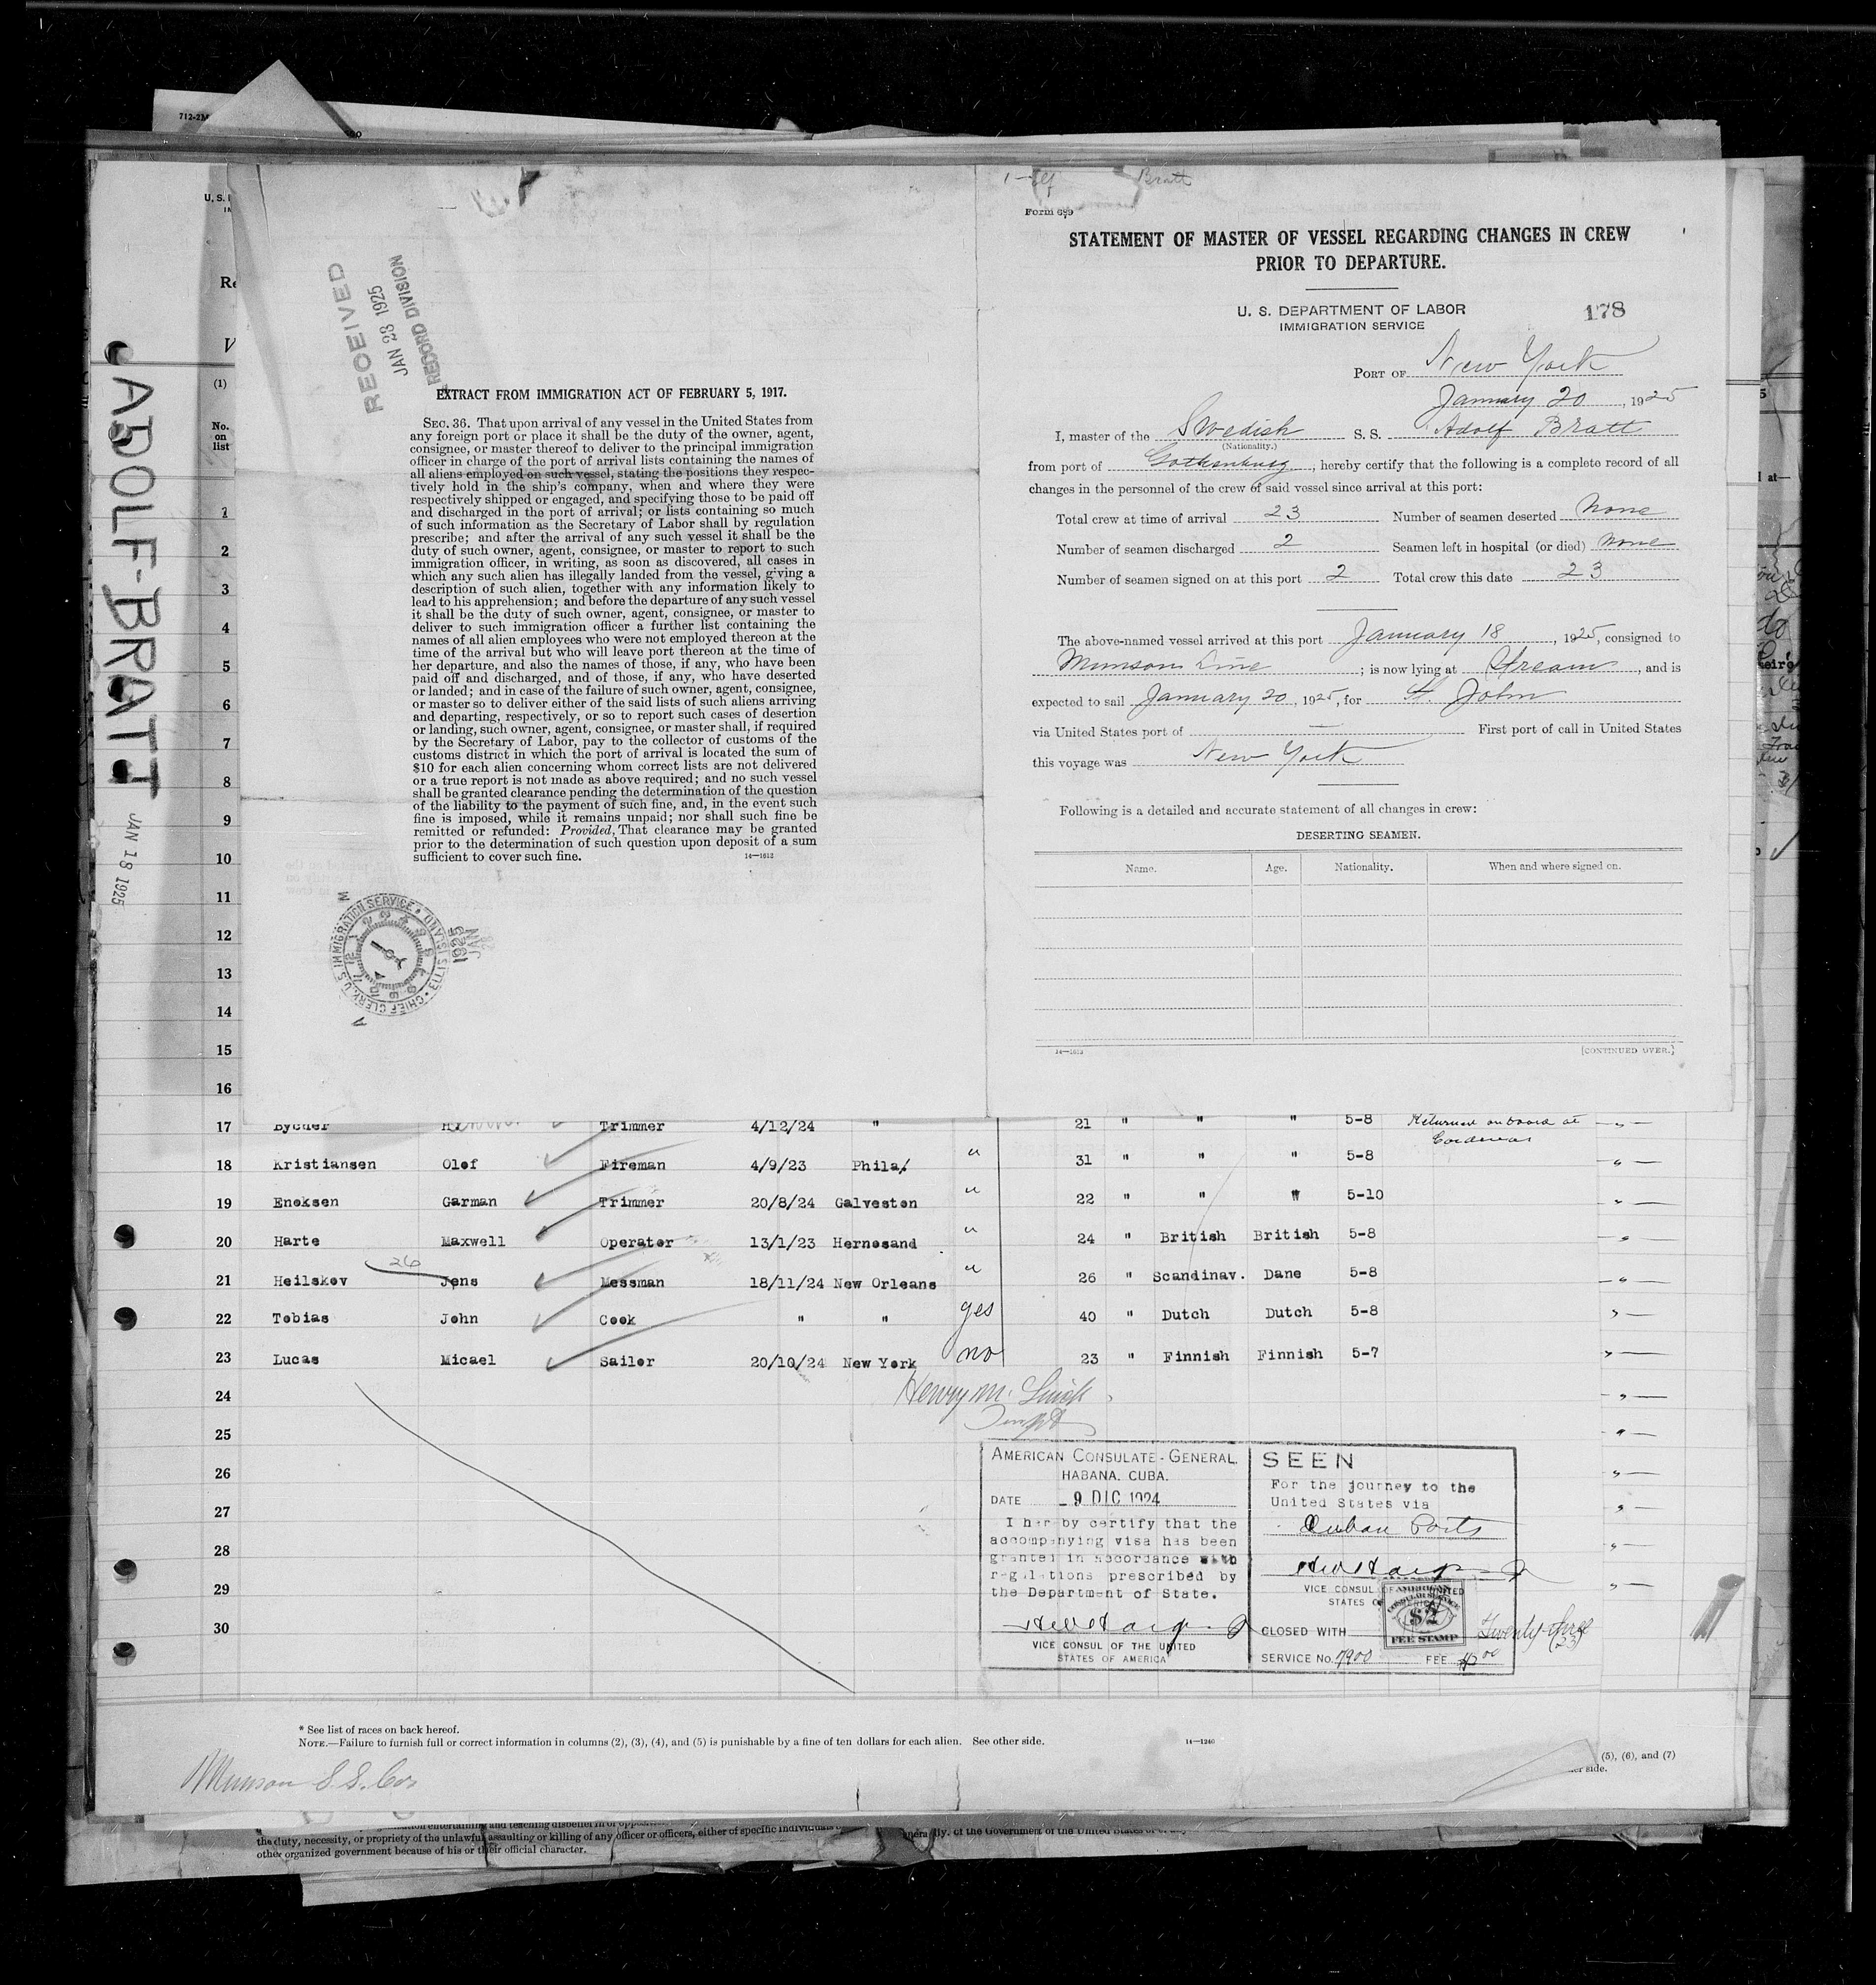 712-2M
U. S. I
IM
Re
V
(1)
No.
on
list
1
2
3
4
5
6
7
8
9
10
11
12
13
14
15
16
ADOLF-BRATT
JAN 18 1925
RECEIVED
JAN 23 1925
RECORD DIVISION
EXTRACT FROM IMMIGRATION ACT OF FEBRUARY 5, 1917.
SEC. 36. That upon arrival of any vessel in the United States from
any foreign port or place it shall be the duty of the owner, agent,
consignee, or master thereof to deliver to the principal immigration
officer in charge of the port of arrival lists containing the names of
all aliens employed on such vessel, stating the positions they respec-
tively hold in the ship's company, when and where they were
respectively shipped or engaged, and specifying those to be paid off
and discharged in the port of arrival; or lists containing so much
of such information as the Secretary of Labor shall by regulation
prescribe; and after the arrival of any such vessel it shall be the
duty of such owner, agent, consignee, or master to report to such
immigration officer, in writing, as soon as discovered, all cases in
which any such alien has illegally landed from the vessel, giving a
description of such alien, together with any information likely to
lead to his apprehension; and before the departure of any such vessel
it shall be the duty of such owner, agent, consignee, or master to
deliver to such immigration officer a further list containing the
names of all alien employees who were not employed thereon at the
time of the arrival but who will leave port thereon at the time of
her departure, and also the names of those, if any, who have been
paid off and discharged, and of those, if any, who have deserted
or landed; and in case of the failure of such owner, agent, consignee,
or master so to deliver either of the said lists of such aliens arriving
and departing, respectively, or so to report such cases of desertion
or landing, such owner, agent, consignee, or master shall, if required
by the Secretary of Labor, pay to the collector of customs of the
customs district in which the port of arrival is located the sum of
$10 for each alien concerning whom correct lists are not delivered
or a true report is not made as above required; and no such vessel
shall be granted clearance pending the determination of the question
of the liability to the payment of such fine, and, in the event such
fine is imposed, while it remains unpaid; nor shall such fine be
remitted or refunded: Provided, That clearance may be granted
prior to the determination of such question upon deposit of a sum
sufficient to cover such fine. 14—1613
U.S. IMMIGRATION SERVICE • ELLIS ISLAND • CHIEF CLERK
JAN 1925
Bratt
Form 689
STATEMENT OF MASTER OF VESSEL REGARDING CHANGES IN CREW
PRIOR TO DEPARTURE.
U. S. DEPARTMENT OF LABOR
IMMIGRATION SERVICE
178
PORT OF New York
January 20, 1925
I, master of the Swedish S. S. Adolf Bratt
(Nationality.)
from port of Gothenburg, hereby certify that the following is a complete record of all
changes in the personnel of the crew of said vessel since arrival at this port:
Total crew at time of arrival 23 Number of seamen deserted None
Number of seamen discharged 2 Seamen left in hospital (or died) None
Number of seamen signed on at this port 2 Total crew this date 23
The above-named vessel arrived at this port January 18, 1925, consigned to
Munson Line; is now lying at Stream, and is
expected to sail January 20, 1925, for St. John
via United States port of — First port of call in United States
this voyage was New York
Following is a detailed and accurate statement of all changes in crew:
DESERTING SEAMEN.
Name. Age. Nationality. When and where signed on.
14—1613 [CONTINUED OVER.]
17 Trimmer 4/12/24 " 21 " " " 5-8 Returned on board at
18 Kristiansen Olof Fireman 4/9/23 Phila/ " 31 " " " 5-8
19 Eneksen Garman Trimmer 20/8/24 Galveston " 22 " " " 5-10
20 Harte Maxwell Operator 13/1/23 Hernosand " 24 " British British 5-8
26
21 Heilskov Jens Messman 18/11/24 New Orleans " 26 " Scandinav. Dane 5-8
22 Tobias John Cook " " yes 40 " Dutch Dutch 5-8
23 Lucas Micael Sailor 20/10/24 New York no 23 " Finnish Finnish 5-7
24
25
26
27
28
29
30
AMERICAN CONSULATE-GENERAL
HABANA, CUBA.
DATE 9 DIC 1924
I hereby certify that the
accompanying visa has been
granted in accordance with
regulations prescribed by
the Department of State.
VICE CONSUL OF THE UNITED
STATES OF AMERICA
SEEN
For the journey to the
United States via
Cuban Ports
VICE CONSUL OF THE UNITED
STATES OF AMERICA
AMERICAN
CONSULAR SERVICE
$2
FEE STAMP
CLOSED WITH Twenty-three
(23)
SERVICE No. 7900 FEE
* See list of races on back hereof.
NOTE.—Failure to furnish full or correct information in columns (2), (3), (4), and (5) is punishable by a fine of ten dollars for each alien. See other side. 14—1240
(5), (6), and (7)
side.
Munson S.S. Co.
the duty, necessity, or propriety of the unlawful assaulting or killing of any officer or officers, either of specific individuals
other organized government because of his or their official character.